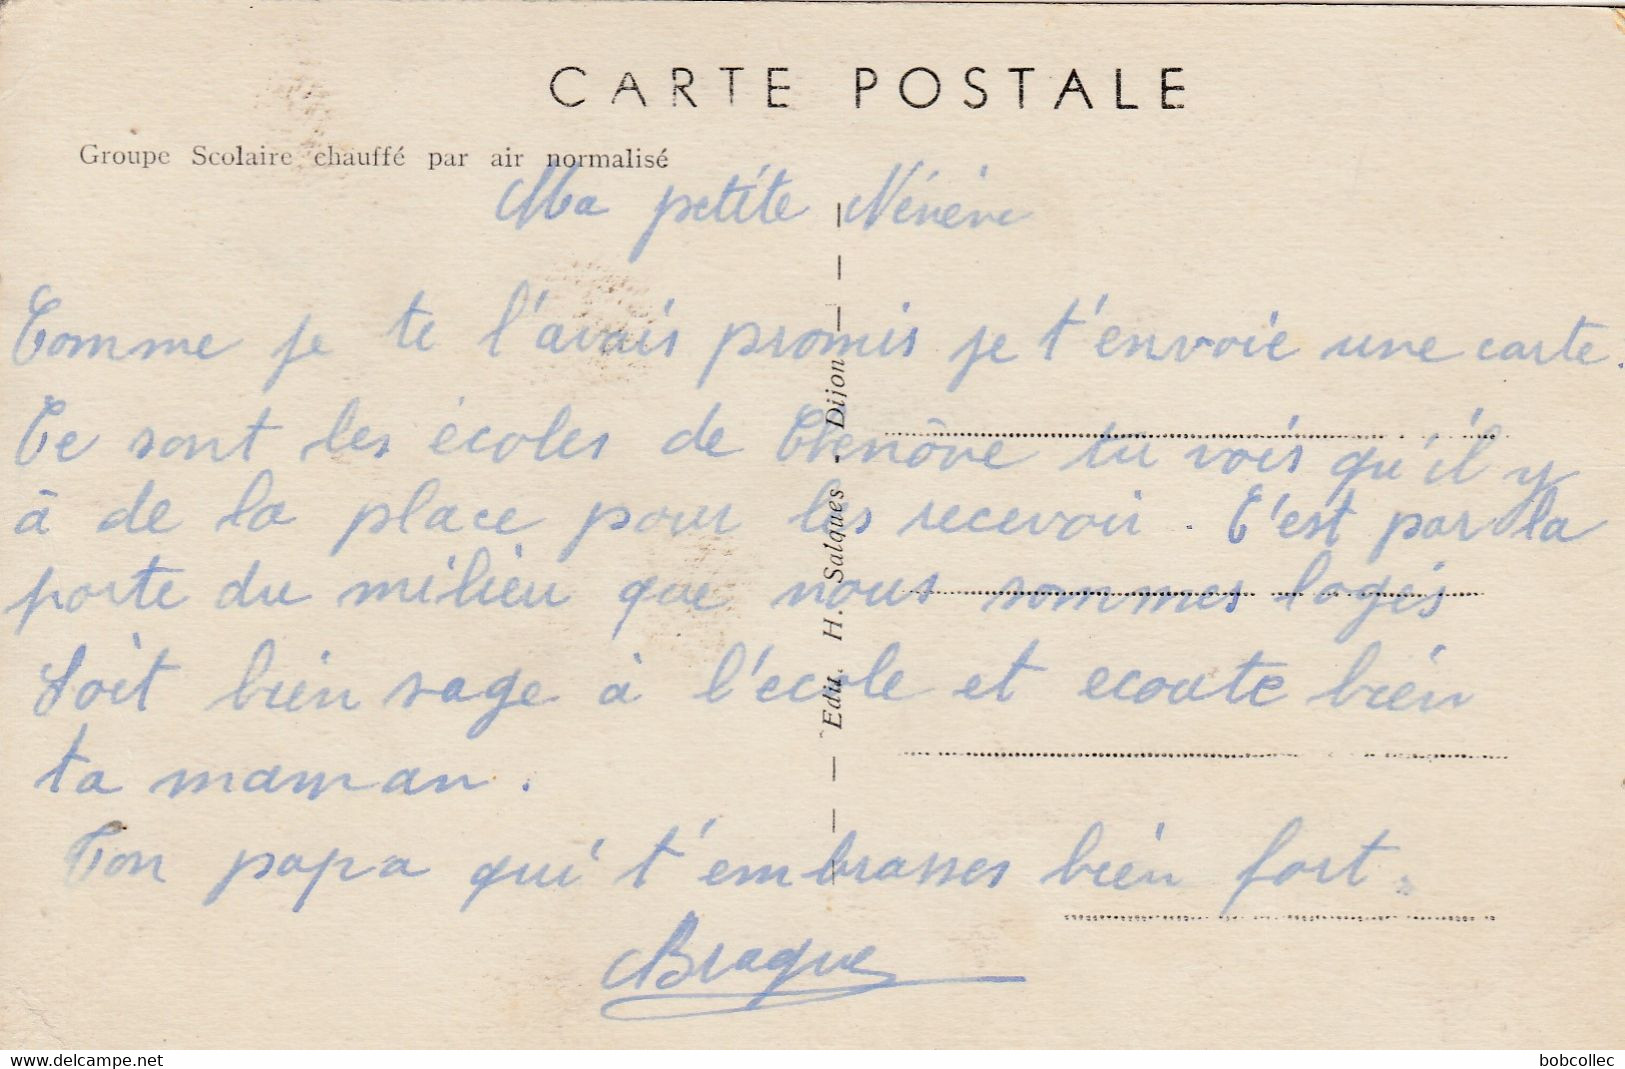 CARTE POSTALE
Groupe Scolaire chauffé par air normalisé
Ma petite Nénène
Comme je te l'avais promis je t'envoie une carte.
Ce sont les écoles de Chenôve tu vois qu'il y
à de la place pour les recevoir. C'est par la
porte du milieu que nous sommes logés
Soit bien sage à l'ecole et ecoute bien
ta maman.
Ton papa qui t'embrasses bien fort.
Braque
Edit. H. Salques - Dijon
www.delcampe.net
bobcollec